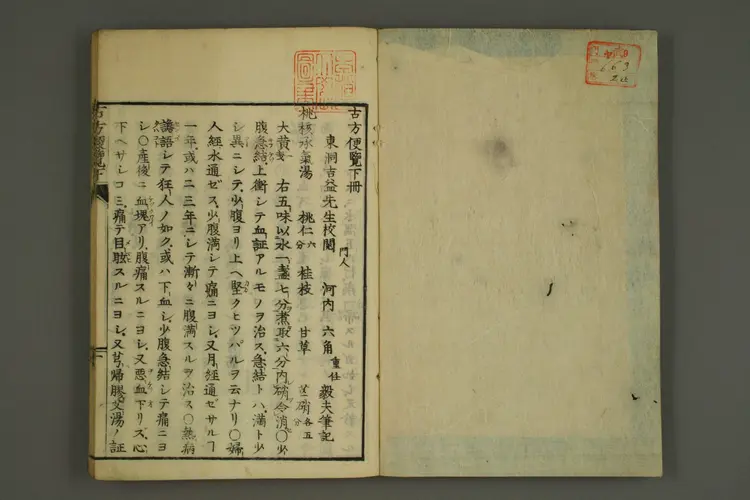 古方便覽下冊
東洞吉益先生校閲 門人 河内 六角重任毅夫筆記
桃核承氣湯 桃仁六分 桂枝 甘草 芒硝各五分
大黄 右五味以水一盞七分煮取六分内硝令消〇少
腹急結上衝シテ血証アルモノヲ治ス急結トハ満ト少
シ異ニシテ少腹ヨリ上ヘ堅クヒツパルヲ云ナリ〇婦
人經水通ゼズ少腹満シテ痛ニヨシ又月經通ゼザルヿ
一年或ハ二三年ニシテ漸々ニ腹満スルヲ治ス〇熱病
譫語シテ狂人ノ如ク或ハ下血シ少腹急結シテ痛ニヨ
シ〇産後ニ血塊アリ腹痛スルニヨシ又悪血下リズ心
下ヘサシコミ痛テ目眩スルニヨシ又芎歸膠艾湯ノ証
古方便覽下
663